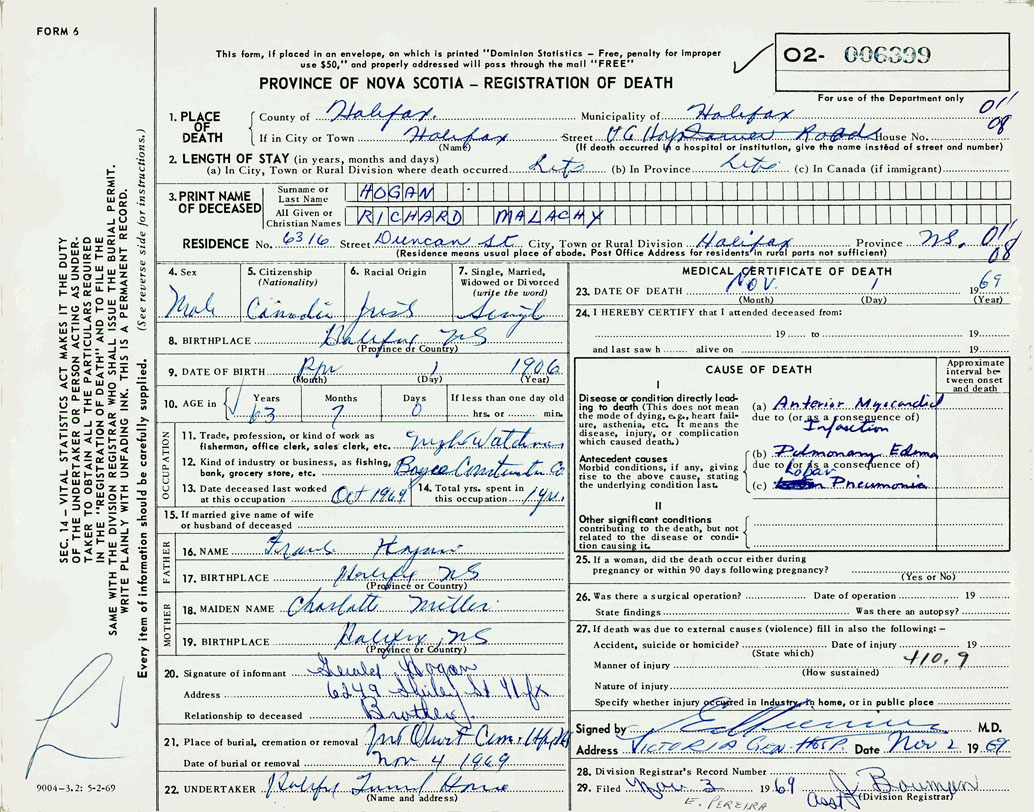 FORM 6
This form, if placed in an envelope, on which is printed "Dominion Statistics – Free, penalty for improper
use $50," and properly addressed will pass through the mail "FREE"
O2- 006399
PROVINCE OF NOVA SCOTIA – REGISTRATION OF DEATH
For use of the Department only
1. PLACE OF DEATH
County of Halifax. Municipality of Halifax 01
If in City or Town Halifax Street V G Hosp Roads House No. 08
(Name) (If death occurred in a hospital or institution, give the name instead of street and number)
2. LENGTH OF STAY (in years, months and days)
(a) In City, Town or Rural Division where death occurred Life (b) In Province Life (c) In Canada (if immigrant)
3. PRINT NAME OF DECEASED
Surname or Last Name HOGAN
All Given or Christian Names RICHARD MALACHY
RESIDENCE No. 6316 Street Duncan St City, Town or Rural Division Halifax Province NS. 01
(Residence means usual place of abode. Post Office Address for residents in rural parts not sufficient) 08
4. Sex
Male
5. Citizenship (Nationality)
Canadian
6. Racial Origin
Irish
7. Single, Married, Widowed or Divorced (write the word)
Single
8. BIRTHPLACE Halifax NS
(Province or Country)
9. DATE OF BIRTH Apr 1 1906
(Month) (Day) (Year)
10. AGE in Years Months Days If less than one day old
63 7 0 hrs. or min.
OCCUPATION
11. Trade, profession, or kind of work as fisherman, office clerk, sales clerk, etc. Night Watchman
12. Kind of industry or business, as fishing, bank, grocery store, etc. Construction Co
13. Date deceased last worked at this occupation Oct 1969
14. Total yrs. spent in this occupation 1 yr.
15. If married give name of wife or husband of deceased
FATHER
16. NAME Frank Hogan
17. BIRTHPLACE Halifax NS
(Province or Country)
MOTHER
18. MAIDEN NAME Charlotte Miller
19. BIRTHPLACE Halifax, NS
(Province or Country)
20. Signature of informant Gerald Hogan
Address 6249 Shirley St Hfx
Relationship to deceased Brother
21. Place of burial, cremation or removal Mt Olivet Cem.
Date of burial or removal Nov 4 1969
22. UNDERTAKER Halifax Funeral Home
(Name and address)
MEDICAL CERTIFICATE OF DEATH
23. DATE OF DEATH Nov. 1 1969
(Month) (Day) (Year)
24. I HEREBY CERTIFY that I attended deceased from:
19 to 19
and last saw h alive on 19
CAUSE OF DEATH
Approximate interval between onset and death
I
Disease or condition directly leading to death (This does not mean the mode of dying, e.g., heart failure, asthenia, etc. It means the disease, injury, or complication which caused death.)
(a) Anterior Myocardial
due to (or as a consequence of)
Infarction
Antecedent causes
Morbid conditions, if any, giving rise to the above cause, stating the underlying condition last.
(b) Pulmonary Edema
due to (or as a consequence of)
(c) Lobar Pneumonia
II
Other significant conditions
contributing to the death, but not related to the disease or condition causing it.
25. If a woman, did the death occur either during pregnancy or within 90 days following pregnancy?
(Yes or No)
26. Was there a surgical operation? Date of operation 19
State findings Was there an autopsy?
27. If death was due to external causes (violence) fill in also the following: –
Accident, suicide or homicide? Date of injury 19
(State which) 410.9
Manner of injury
(How sustained)
Nature of injury
Specify whether injury occurred in industry, in home, or in public place
Signed by M.D.
Address VICTORIA GEN. HOSP. Date Nov 2 1969
28. Division Registrar's Record Number
29. Filed Nov. 3 1969 J. Bauman
E. PEREIRA Asst (Division Registrar)
SEC. 14 – VITAL STATISTICS ACT MAKES IT THE DUTY
OF THE UNDERTAKER OR PERSON ACTING AS UNDER-
TAKER TO OBTAIN ALL THE PARTICULARS REQUIRED
IN THE "REGISTRATION OF DEATH" AND TO FILE THE
SAME WITH THE DIVISION REGISTRAR WHO SHALL ISSUE THE BURIAL PERMIT.
WRITE PLAINLY WITH UNFADING INK. THIS IS A PERMANENT RECORD.
Every item of information should be carefully supplied. (See reverse side for instructions.)
9004-3.2: 5-2-69